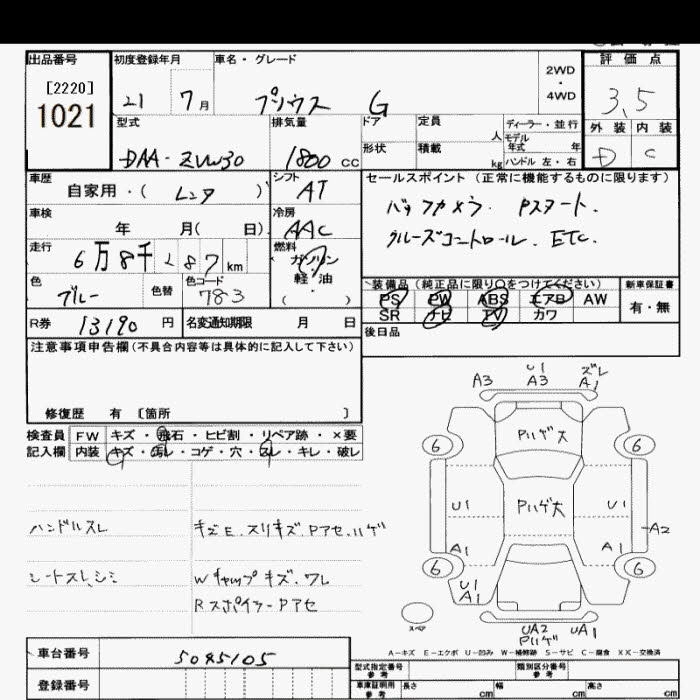 出品番号
[2220]
1021
初度登録年月
21 7月
車名・グレード
プリウス G
2WD
・
4WD
評価点
3.5
外装 内装
D C
型式
DAA-ZVW30
排気量
1800 cc
ドア
形状
定員
人
積載
kg
ディーラー・並行
モデル
年式 年
ハンドル 左・右
車歴
自家用・( レンタ )
シフト
AT
車検
年 月( 日)
冷房
AAC
走行
6万8千287km
燃料
ガソリン
軽・油
( )
色
ブルー
色替
色コード
783
R券 13190円
名変通知期限 月 日
セールスポイント (正常に機能するものに限ります)
バックカメラ. Pスタート.
クルーズコントロール. ETC.
装備品(純正品に限り○をつけてください)
PS PW ABS エアB AW
SR ナビ TV カワ
新車保証書
有・無
後日品
注意事項申告欄(不具合内容等は具体的に記入して下さい)
修復歴 有 〔箇所 〕
検査員
記入欄
FW キズ・飛石・ヒビ割・リペア跡・×要
内装 キズ・汚レ・コゲ・穴・スレ・キレ・破レ
ハンドルスレ
シートスレ,シミ
キズE.スリキズ.Pアセ.ハゲ
Wキャップキズ.ワレ
Rスポイラーアセ
A3
U1
A3
ズレ
A1
Pハゲ大
6
6
Pハゲ大
U1
U1
A2
A1
A1
6
6
U1
A1
スペア
UA2
Pハゲ
UA1
A-キズ E-エクボ U-凹み W-補修跡 S-サビ C-腐食 XX-交換済
車台番号 5085105
登録番号
型式指定番号
参考
類別区分番号
参考
車庫証明用
参考
長さ cm
幅 cm
高さ cm